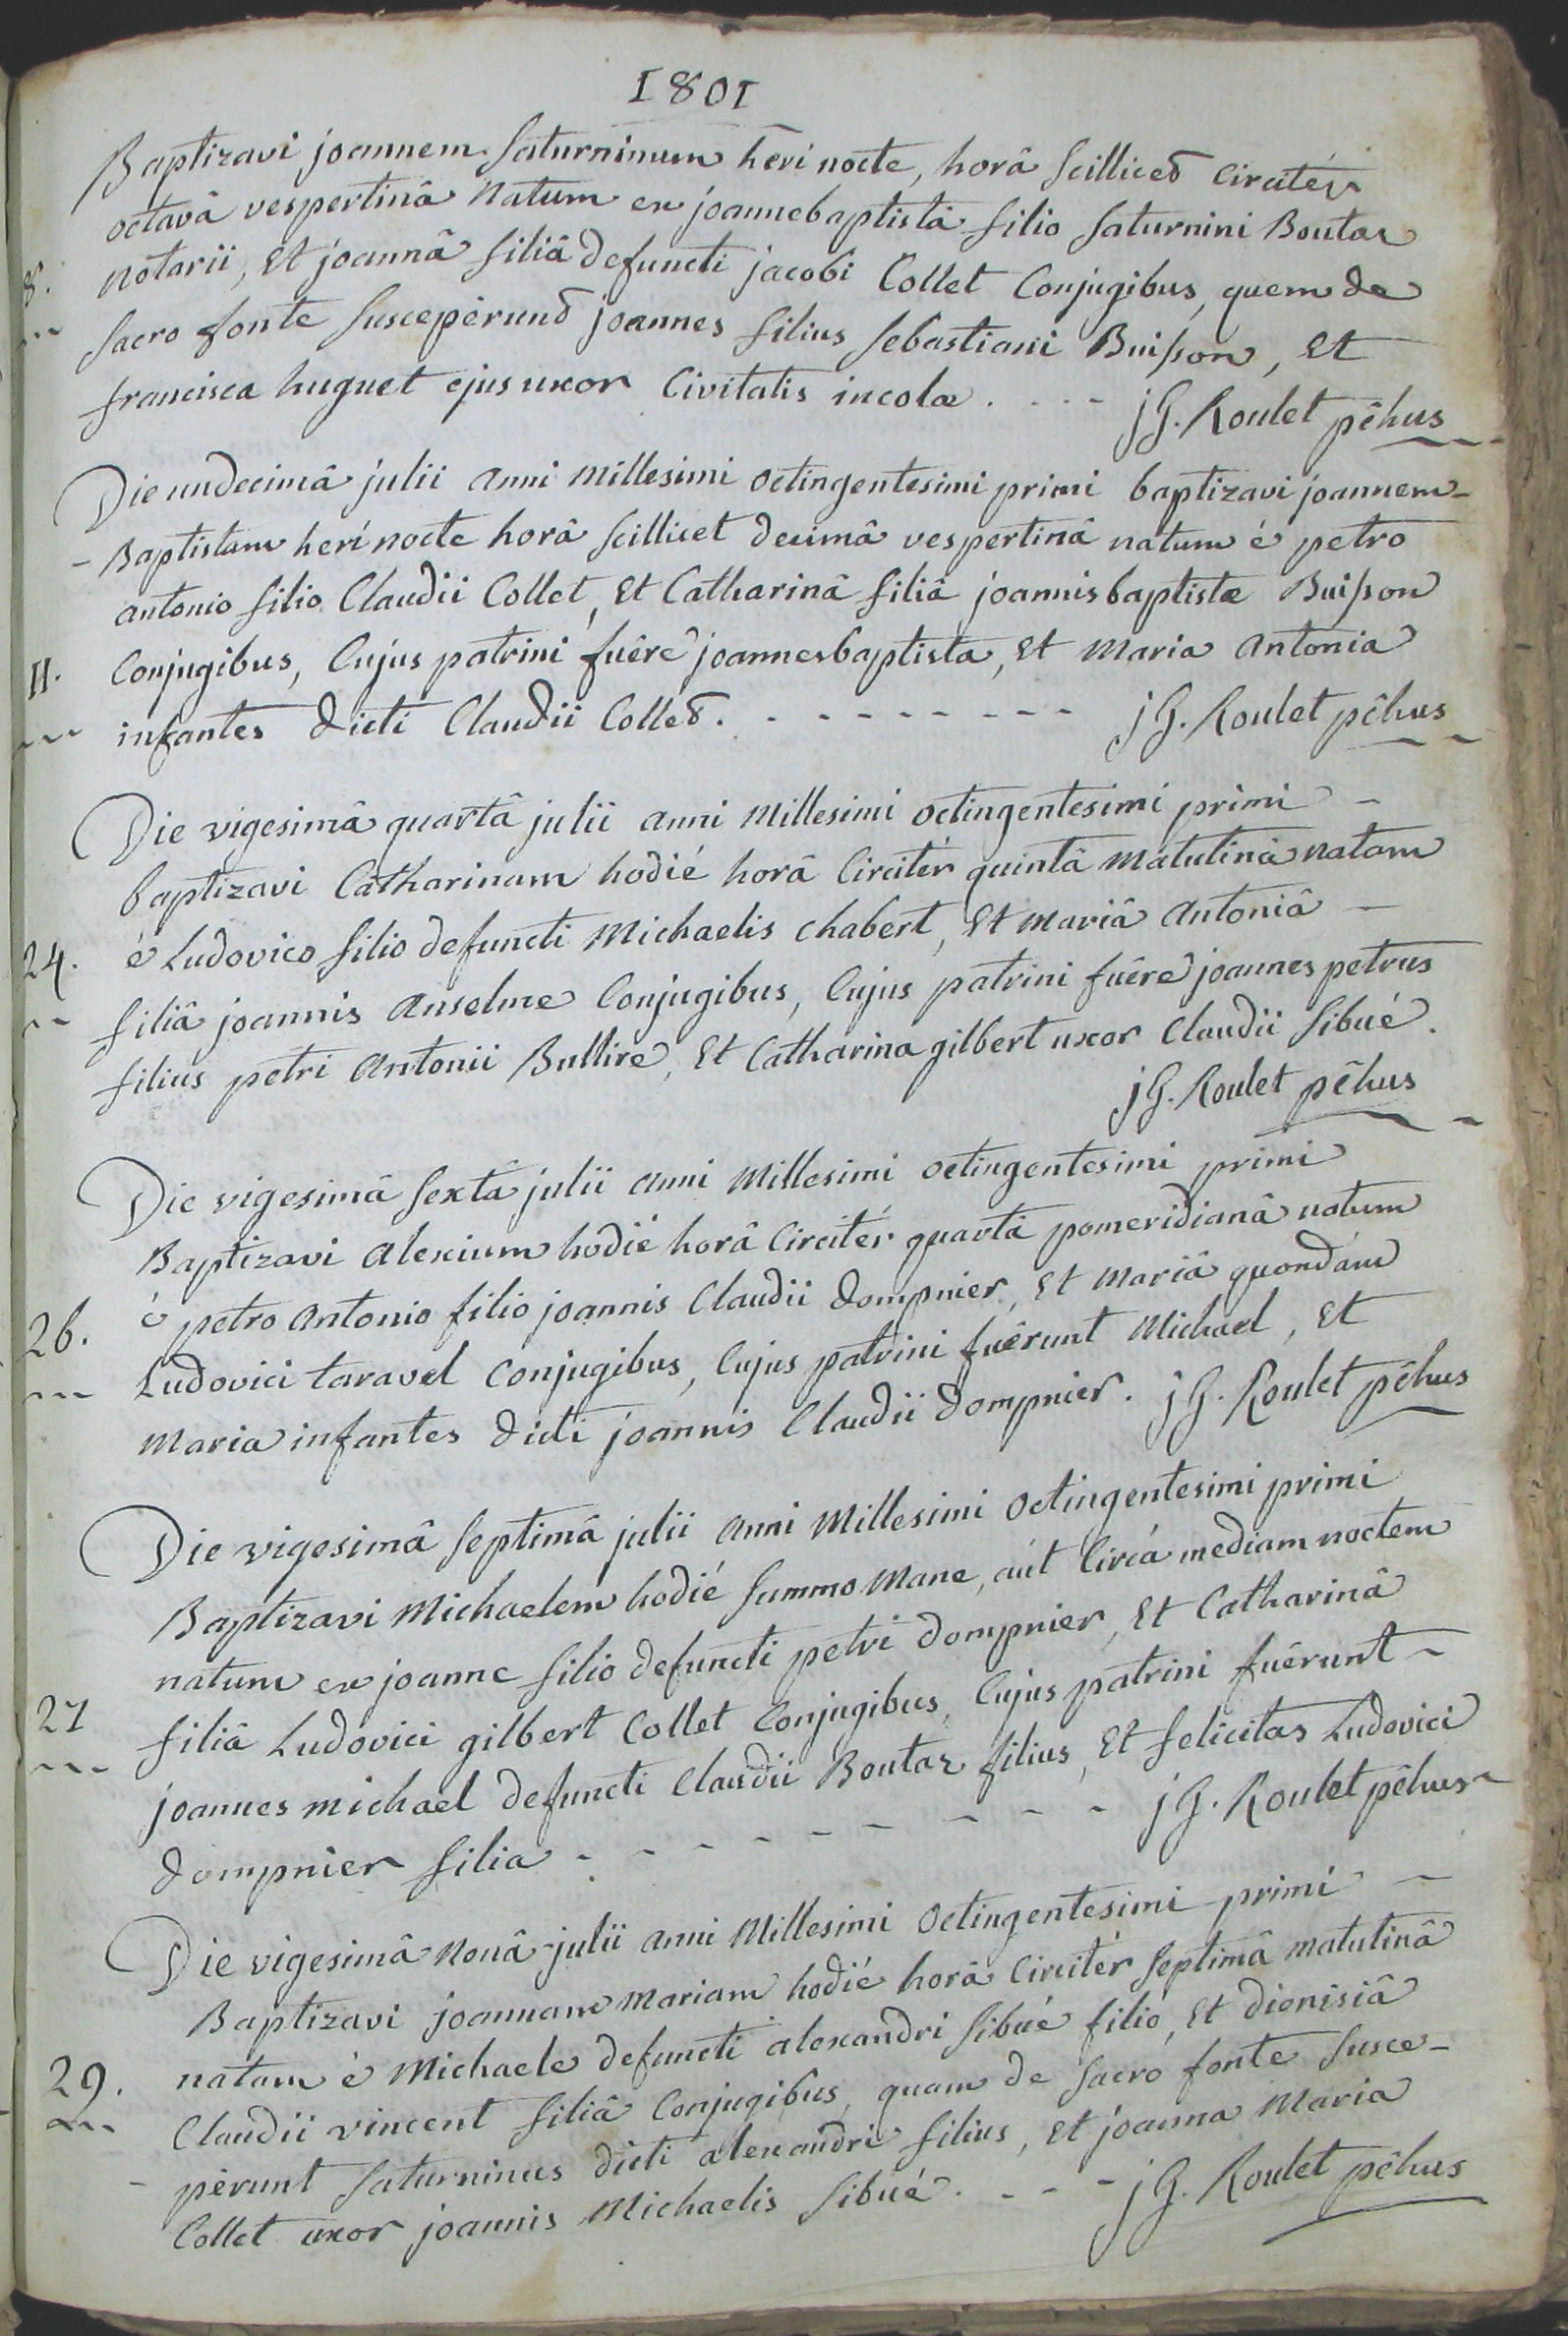 1801
Baptizavi joannem Saturninum heri nocte, horâ scillicet circitér
octavâ vespertinâ natum ex joannebaptistâ filio Saturnini Boutaz
8.
notarii, Et joannâ filiâ defuncti jacobi Collet Conjugibus, quem de
sacro fonte suscepérunt joannes filius Sebastiani Buisson, Et
francisca huguet ejus uxor Civitatis incolæ. - - - jG. Roulet pêhus
Die undecimâ julii anni millesimi octingentesimi primi baptizavi joannem-
-Baptistam heri nocte horâ scillicet decimâ vespertinâ natum é petro
antonio filio Claudii Collet, Et Catharinâ filiâ joannisbaptistæ Buisson
11.
Conjugibus, Cujus patrini fuêre joannesbaptista, Et Maria antonia
infantes dicti Claudii Collet. - - - - - - - - - jG. Roulet pêhus
Die vigesimâ quartâ julii anni Millesimi octingentesimi primi -
baptizavi Catharinam hodié horâ Circitér quintâ matutinâ natam
24.
é Ludovico filio defuncti Michaelis Chabert, Et mariâ Antoniâ -
filiâ joannis Anselme Conjugibus, Cujus patrini fuêre joannes petrus
filius petri Antonii Bullire, Et Catharina gilbert uxor Claudii Sibué.
jG. Roulet pêhus
Die vigesimâ sextâ julii anni Millesimi octingentesimi primi
Baptizavi Alexium hodié horâ Circitér quartâ pomeridianâ natum
26.
é petro Antonio filio joannis Claudii dompnier, Et Mariâ quondám
Ludovici taravel Conjugibus, Cujus patrini fuêrunt Michael, Et
Maria infantes dicti joannis Claudii dompnier. jG. Roulet pêhus
Die vigesimâ septimâ julii anni Millesimi octingentesimi primi
Baptizavi Michaelem hodié summo mane, aút Circá mediam noctem
natum ex joanne filio defuncti petri dompnier, Et Catharinâ
27
filiâ Ludovici gilbert Collet Conjugibus, Cujus patrini fuêrunt -
joannes michael defuncti Claudii Boutaz filius, Et felicitas Ludovici
dompnier filia - - - - - - - - - jG. Roulet pêhus
Die vigesimâ nonâ julii anni Millesimi octingentesimi primi -
Baptizavi joannam mariam hodié horâ Circitér septimâ matutinâ
29.
natam é Michaele defuncti alexandri Sibué filio, Et dionisiâ
Claudii vincent filiâ Conjugibus, quam de sacro fonte susce-
-pêrunt Saturninus dicti alexandri filius, Et joanna Maria
Collet uxor joannis Michaelis Sibué. - - - jG. Roulet pêhus